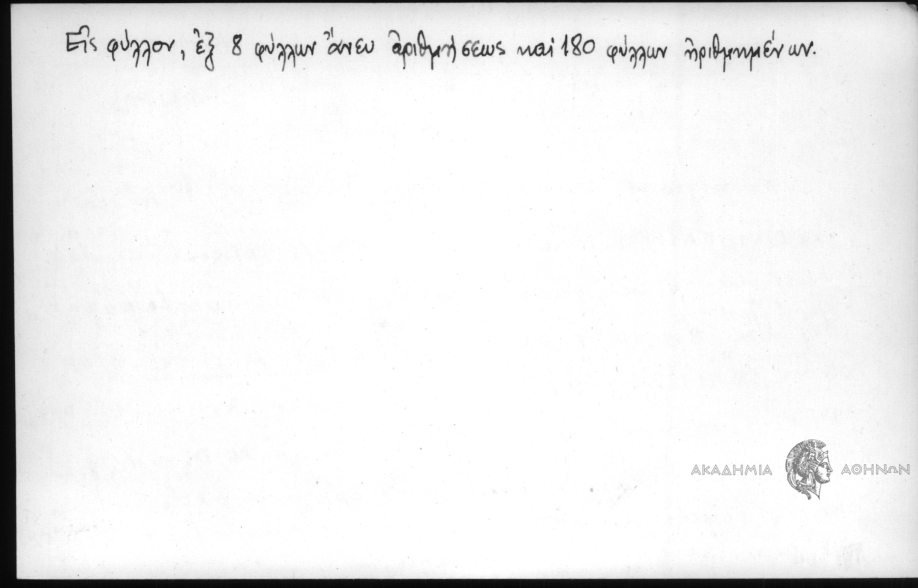 Εἰς φύλλον, ἐξ 8 φύλλων ἄνευ ἀριθμήσεως καὶ 180 φύλλων ἠριθμημένων.
ΑΚΑΔΗΜΙΑ ΑΘΗΝΩΝ